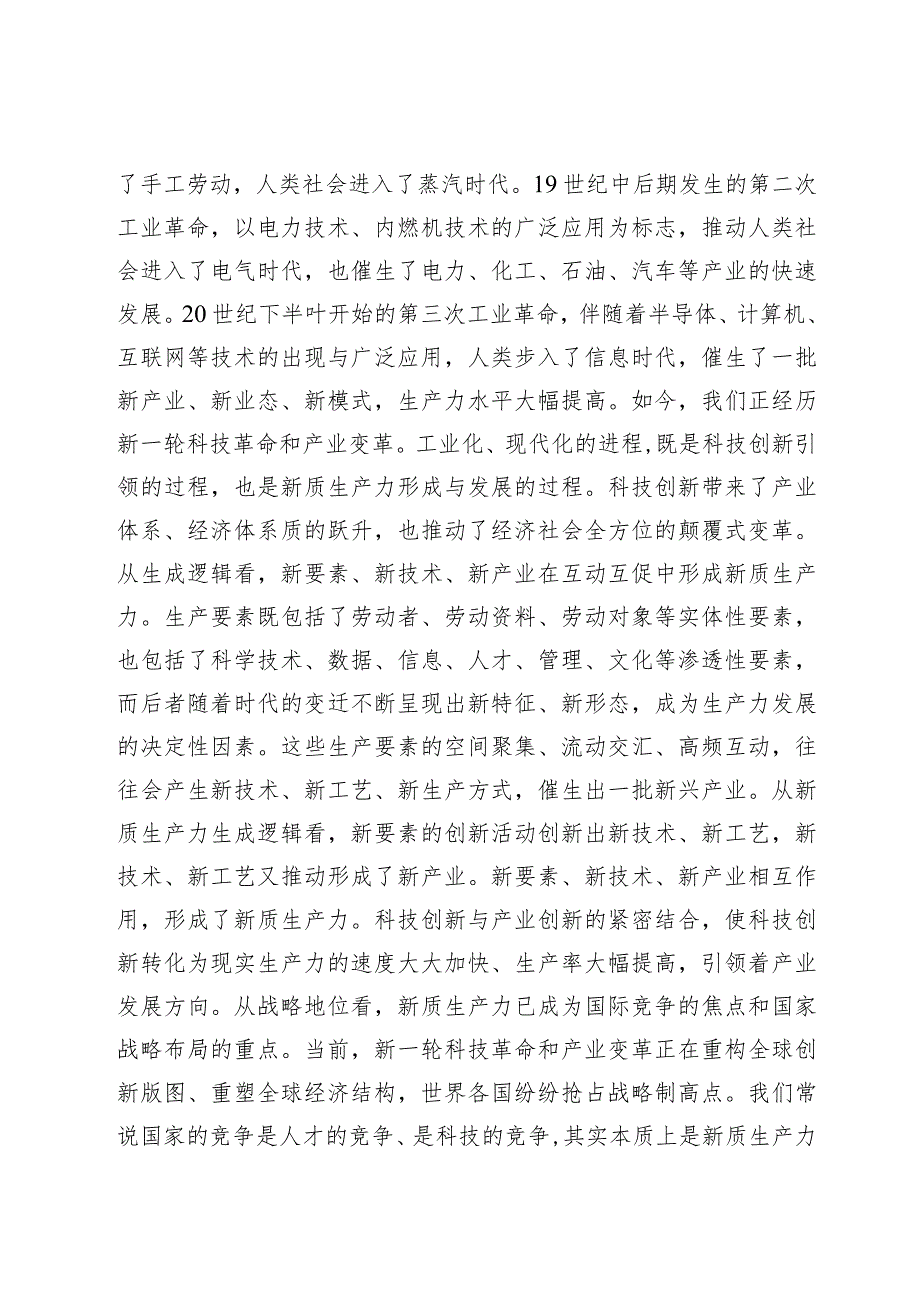 了手工劳动，人类社会进入了蒸汽时代。19世纪中后期发生的第二次
工业革命，以电力技术、内燃机技术的广泛应用为标志，推动人类社
会进入了电气时代，也催生了电力、化工、石油、汽车等产业的快速
发展。20世纪下半叶开始的第三次工业革命，伴随着半导体、计算机、
互联网等技术的出现与广泛应用，人类步入了信息时代，催生了一批
新产业、新业态、新模式，生产力水平大幅提高。如今，我们正经历
新一轮科技革命和产业变革。工业化、现代化的进程,既是科技创新引
领的过程，也是新质生产力形成与发展的过程。科技创新带来了产业
体系、经济体系质的跃升，也推动了经济社会全方位的颠覆式变革。
从生成逻辑看，新要素、新技术、新产业在互动互促中形成新质生产
力。生产要素既包括了劳动者、劳动资料、劳动对象等实体性要素，
也包括了科学技术、数据、信息、人才、管理、文化等渗透性要素，
而后者随着时代的变迁不断呈现出新特征、新形态，成为生产力发展
的决定性因素。这些生产要素的空间聚集、流动交汇、高频互动，往
往会产生新技术、新工艺、新生产方式，催生出一批新兴产业。从新
质生产力生成逻辑看，新要素的创新活动创新出新技术、新工艺，新
技术、新工艺又推动形成了新产业。新要素、新技术、新产业相互作
用，形成了新质生产力。科技创新与产业创新的紧密结合，使科技创
新转化为现实生产力的速度大大加快、生产率大幅提高，引领着产业
发展方向。从战略地位看，新质生产力已成为国际竞争的焦点和国家
战略布局的重点。当前，新一轮科技革命和产业变革正在重构全球创
新版图、重塑全球经济结构，世界各国纷纷抢占战略制高点。我们常
说国家的竞争是人才的竞争、是科技的竞争,其实本质上是新质生产力